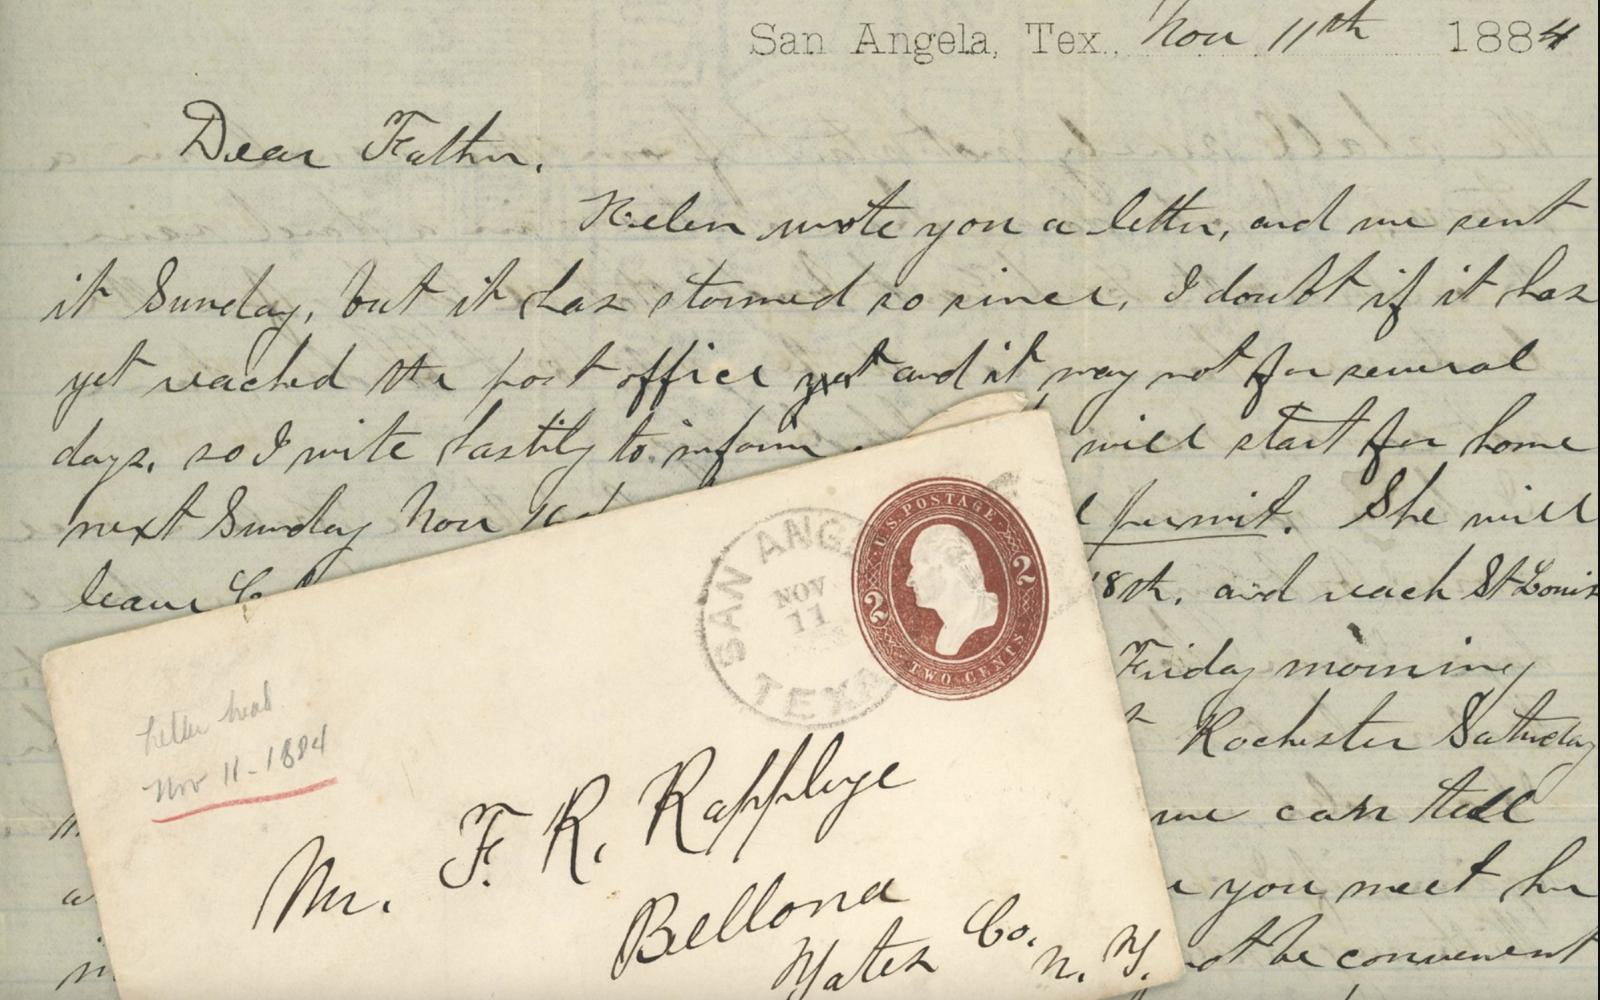 San Angela, Tex., Nov 11th 1884
Dear Father,
Helen wrote you a letter, and we sent
it Sunday, but it has stormed so since, I doubt if it has
yet reached the post office yet and it may not for several
days, so I write hastily to inform will start for home
next Sunday Nov permit. She will
leave 18th, and reach St Louis
Friday morning
Rochester Saturday
we can tell
you meet her
not be convenient
SAN ANG
NOV
11
TEXA
U.S. POSTAGE
2 2
TWO CENTS
Letter head
Nov 11-1884
Mr. F. R. Rappleye
Bellona
Yates Co.
N. Y.